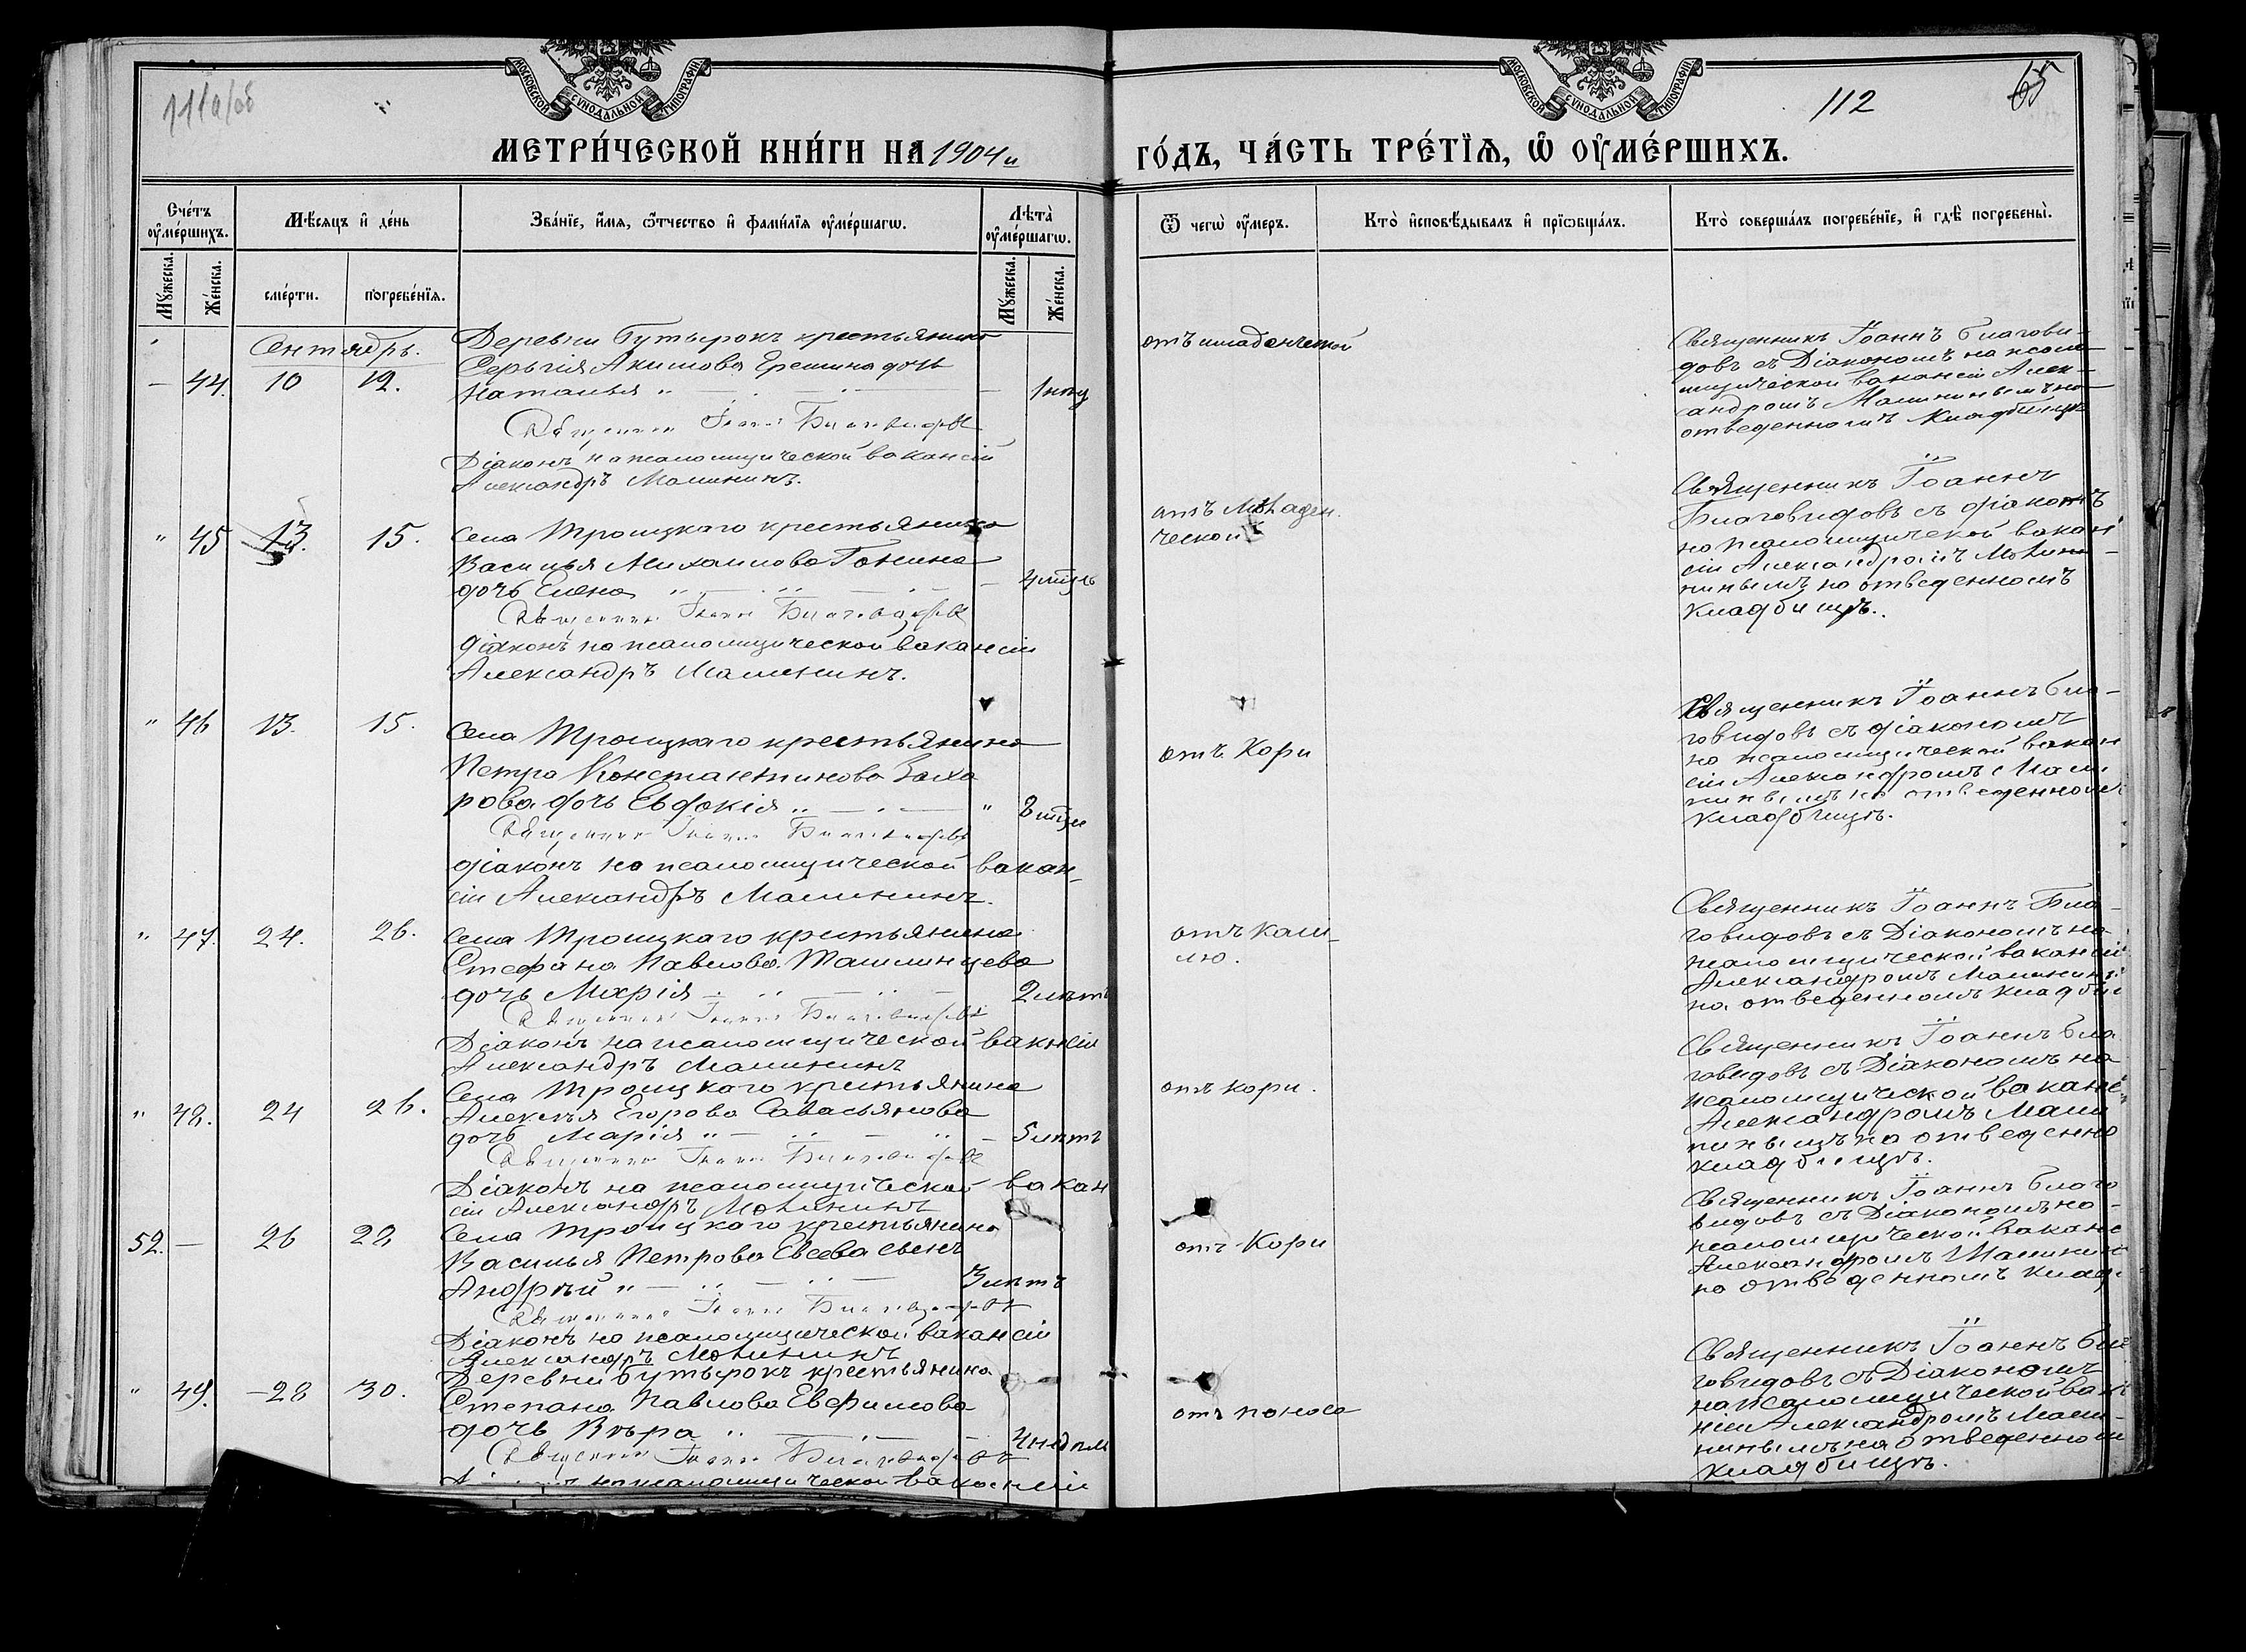 111а/об
112
65
МОСКОВСКОЙ СѴНОДАЛЬНОЙ ТИПОГРАФІИ
МОСКОВСКОЙ СѴНОДАЛЬНОЙ ТИПОГРАФІИ
МЕТРИ́ЧЕСКОЙ КНИ́ГИ НА 1904й
ГО́ДЪ, ЧА́СТЬ ТРЕ́ТЇѦ, Ѡ҆ ОУ҆МЕ́РШИХЪ.
Сче́тъ оу҆ме́ршихъ.
Мѣ́сяцъ и҆ де́нь
Зва́нїе, и҆́мя, ѻ҆́тчество и҆ фами́лїя оу҆ме́ршагѡ.
Лѣта̀ оу҆ме́ршагѡ.
Ѿ чегѡ̀ оу҆́меръ.
Кто̀ и҆сповѣ́дывалъ и҆ прїѡбща́лъ.
Кто̀ соверша́лъ погребе́нїе, и҆ гдѣ̀ погребены̀.
Мꙋ́жеска.
Же́нска.
сме́рти.
погребе́нїя.
Мꙋ́жеска.
Же́нска.
Сентябрь.
Деревни Бутырокъ крестьянина
Сергія Акимова Еремина дочь
— 44. 10 12. Наталья " — 1 году
Священникъ Іоаннъ Благовидовъ
Діаконъ на псаломщической вакансіи
Александръ Малининъ.
отъ младенческой
Священникъ Іоаннъ Благови-
довъ съ Діакономъ на псало-
мщической вакансіи Алек-
сандромъ Малининымъ на
отведенномъ кладбищѣ
" 45 13. 15. Села Троицкаго крестьянина
Василья Михаилова Гонина
дочь Елена
Священникъ Іоаннъ Благовидовъ
Діаконъ на псаломщической вакансіи
Александръ Малининъ.
отъ младен.
ческой
Священникъ Іоаннъ
Благовидовъ съ діакономъ
на псаломщической вакан
сіи Александромъ Мали
нинымъ на отведенномъ
кладбищѣ.
" 46 13. 15. Села Троицкаго крестьянина
Петра Константинова Заха
рова дочь Евдокія "
Священникъ Іоаннъ Благовидовъ
діаконъ на псаломщической вакан-
сіи Александръ Малининъ.
отъ Кори
Священникъ Іоаннъ Бла-
говидовъ съ діакономъ
на псаломщической вакан
сіи Александромъ Мали
нинымъ на отведенномъ
кладбищѣ.
" 47. 24. 26. Села Троицкаго крестьянина
Стефана Павлова
дочь Марія — 2 лѣтъ
Священникъ Іоаннъ Благовидовъ
Діаконъ на псаломщической вакнсіи
Александръ Малининъ
отъ каш-
лю.
Священникъ Іоаннъ Бла-
говидовъ съ Діакономъ на
псаломщической вакансіи
Александромъ Малинин
на отведенномъ кладби
" 48. 24 26. Села Троицкаго крестьянина
Алексѣя Егорова Савасьянова
дочь Марія " — 5 лѣтъ
Священникъ Іоаннъ Благовидовъ
Діаконъ на псаломщической вакан
сіи Александръ Малининъ
отъ кори.
Священникъ Іоаннъ Бла
говидовъ съ Діакономъ на
псаломщической ваканс
Александромъ Мали
нинымъ на отведенно
кладбищѣ.
52. — 26 28 Села Троицкаго крестьянина
Василья Петрова Евсева сынъ
Андрѣй " — 3 лѣтъ
Священникъ Іоаннъ Благовидовъ
Діаконъ на псаломщической вакансіи
Александръ Малининъ
отъ Кори
Священникъ Іоаннъ Благо
видовъ съ Діакономъ на
псаломщической ваканс
Александромъ Малинин
на отведенномъ клад
Деревни Бутырокъ крестьянина
" 49. —28 30. Степана Павлова Евфимова
дочь Вѣра " — 4 недѣли
Священникъ Іоаннъ Благовидовъ
на псаломщической вакансіи
отъ поноса
Священникъ Іоаннъ Бла
говидовъ съ Діакономъ
на псаломщической вак
нсіи Александромъ Мали-
нинымъ на отведенном
кладбищѣ.